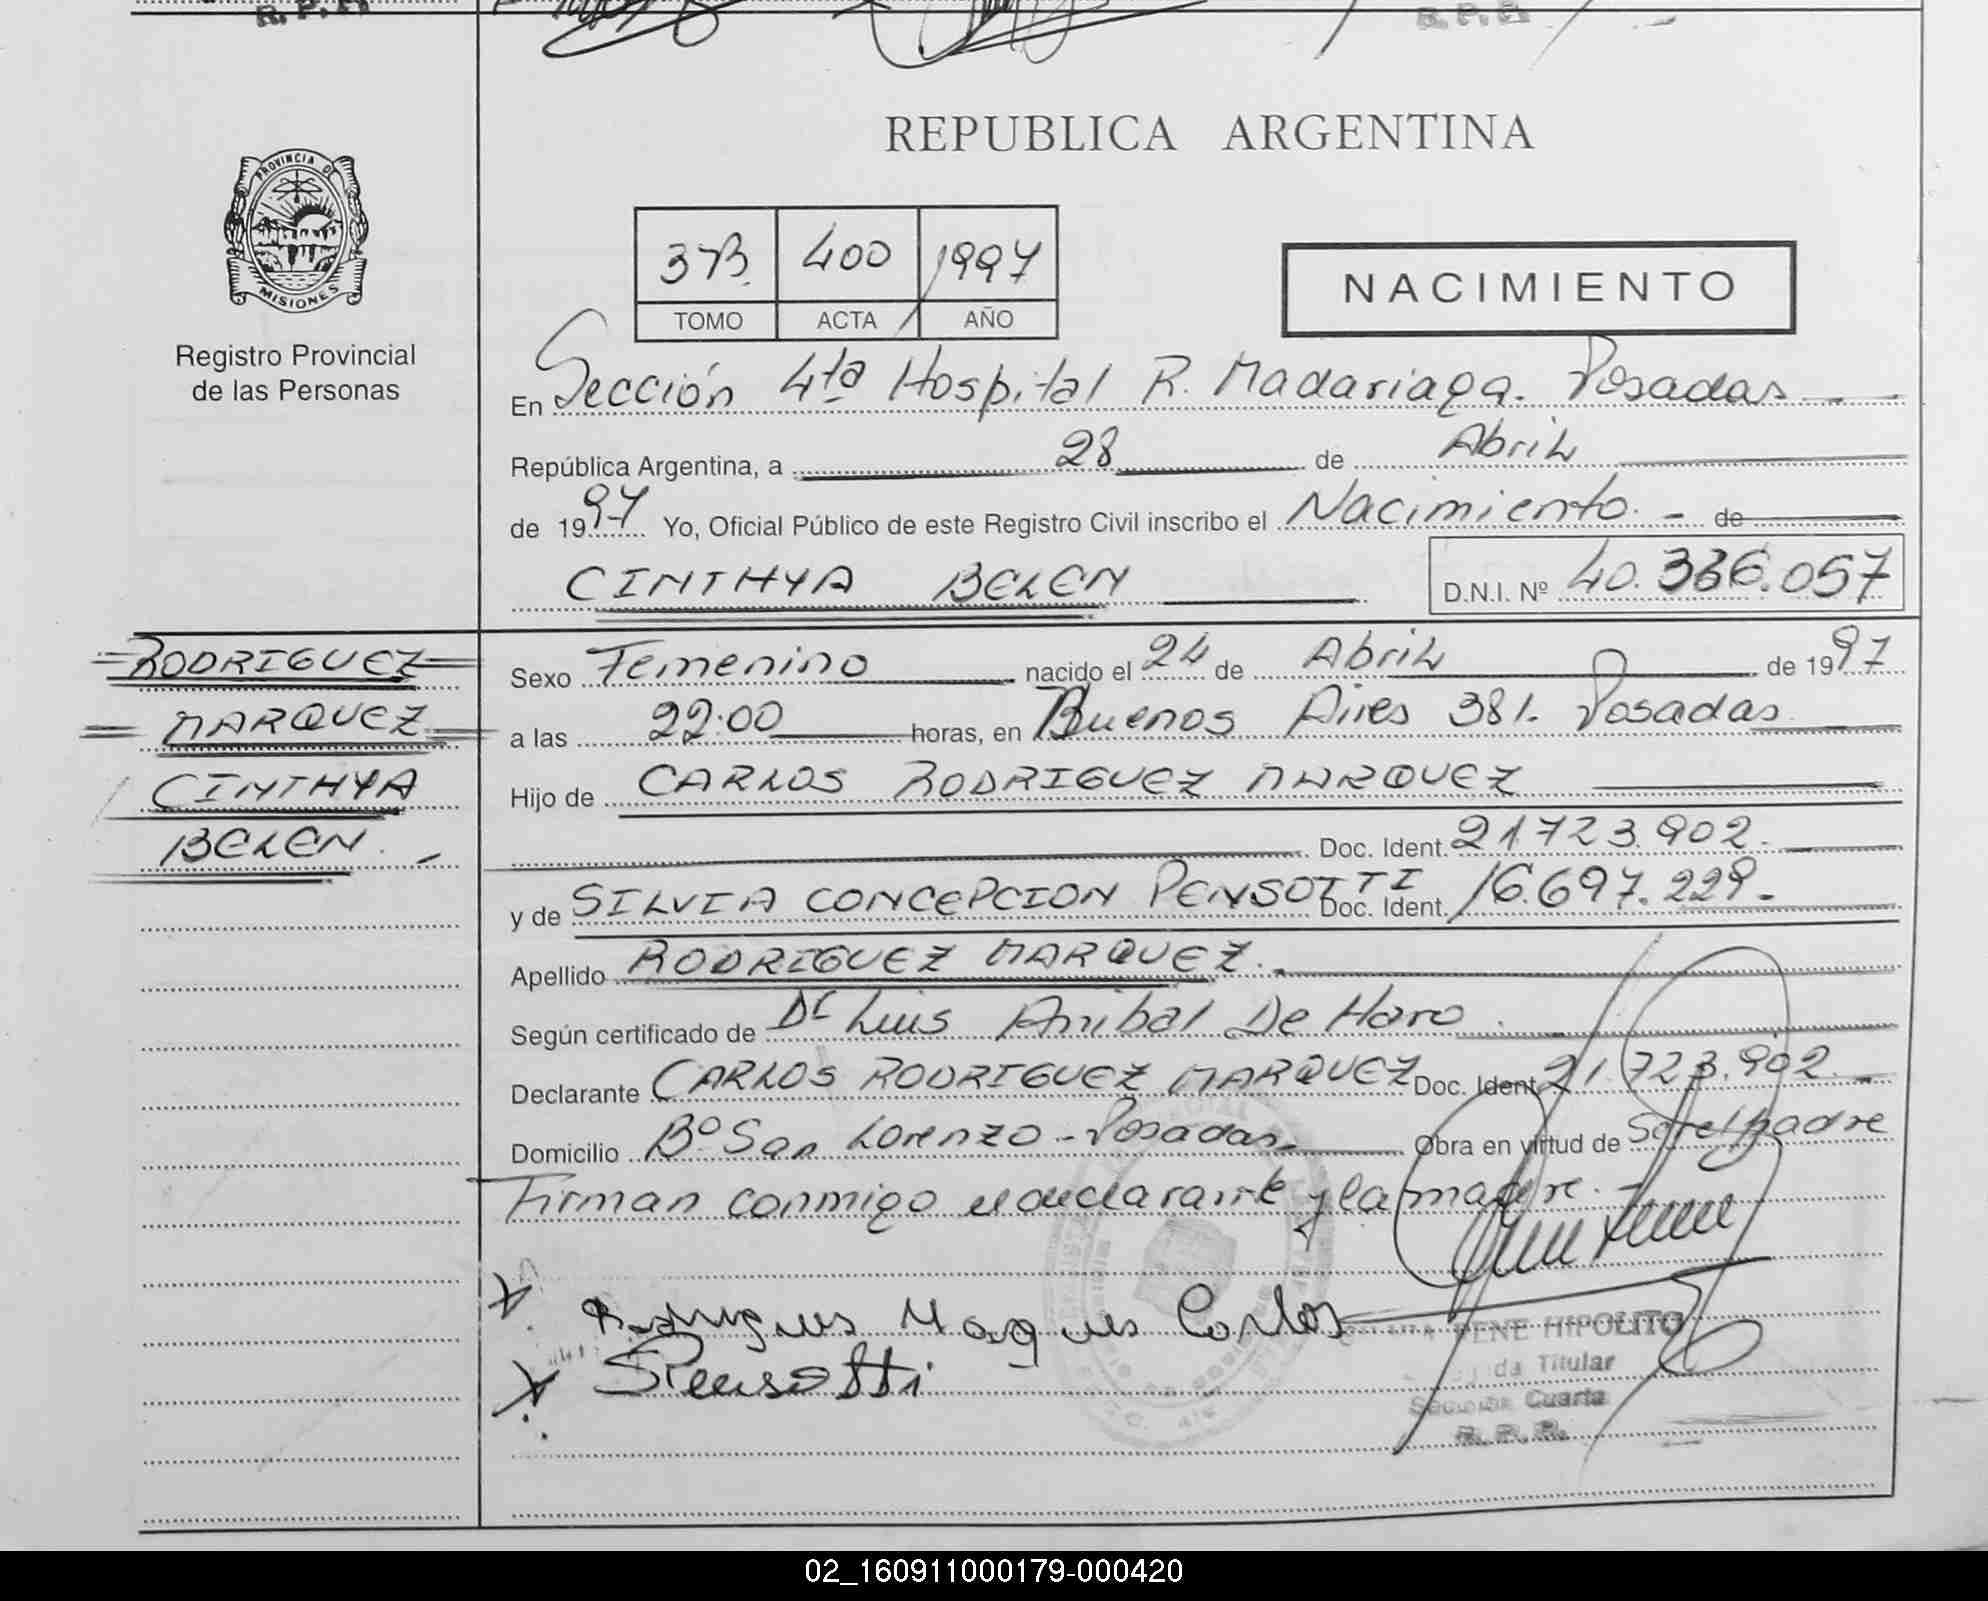 R. P. P.
R. P. P.
PROVINCIA DE
MISIONES
Registro Provincial
de las Personas
REPUBLICA ARGENTINA
3B 400 1997
TOMO ACTA AÑO
NACIMIENTO
En Sección 4ta Hospital R. Madariaga. Posadas
República Argentina, a 28 de Abril
de 1997 Yo, Oficial Público de este Registro Civil inscribo el Nacimiento. - de
CINTHYA BELEN D.N.I. Nº 40.336.057
RODRIGUEZ
MARQUEZ
CINTHYA
BELEN. -
Sexo Femenino nacido el 24 de Abril de 1997
a las 22:00 horas, en Buenos Aires 381. Posadas
Hijo de CARLOS RODRIGUEZ MARQUEZ
Doc. Ident. 21.723.902.
y de SILVIA CONCEPCION PENSOTTI Doc. Ident. 16.697.229.
Apellido RODRIGUEZ MARQUEZ.
Según certificado de Dr Luis Anibal De Haro.
Declarante CARLOS RODRIGUEZ MARQUEZ Doc. Ident. 21.723.902.
Domicilio Bº San Lorenzo - Posadas. Obra en virtud de Ser el padre
Firman conmigo el declarante y la madre. -
Rodrigues Marques Carlos
Pensotti
RENE HIPOLITO
Titular
Sección Cuarta
R. P. P.
02_160911000179-000420